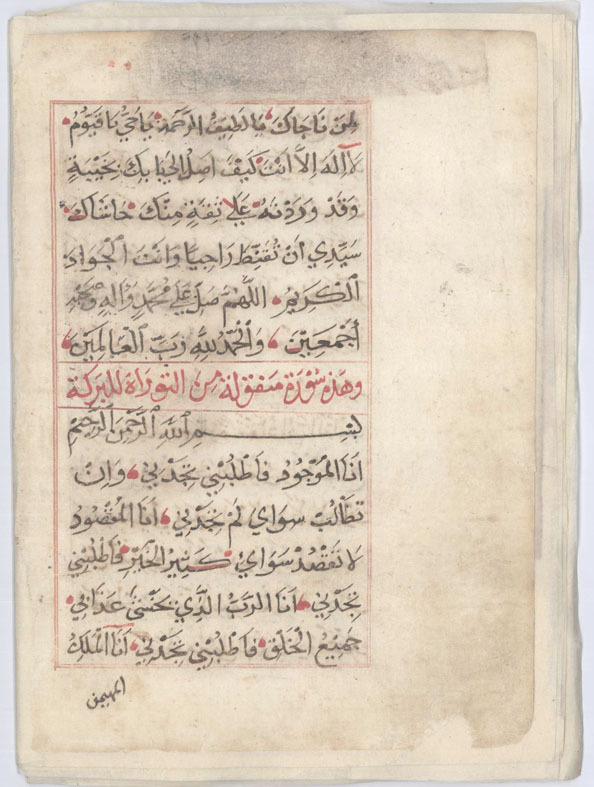 لمن ناجاك يا لطيف الرحمة يا حي يا قيوم
لا اله الا انت كيف اصل الجنابك بخيبة
وقد وردته على ثقة منك حاشاك
سيدي ان تقنط راجيا وانت الجواد
الكريم اللهم صل على محمد واله وصحبه
أجمعين والحمد لله رب العالمين
وهذه سورة منقولة من التوراة للبركة
بسم الله الرحمن الرحيم
انا الموجود فاطلبني تجدني وان
تطالب سواي لم تجدني انا المقصود
لا تقصد سواي كثير الخير فاطلبني
تجدني انا الرب الذي يخشى عذابي
جميع الخلق فاطلبني تجدني انا الملك
المهيمن